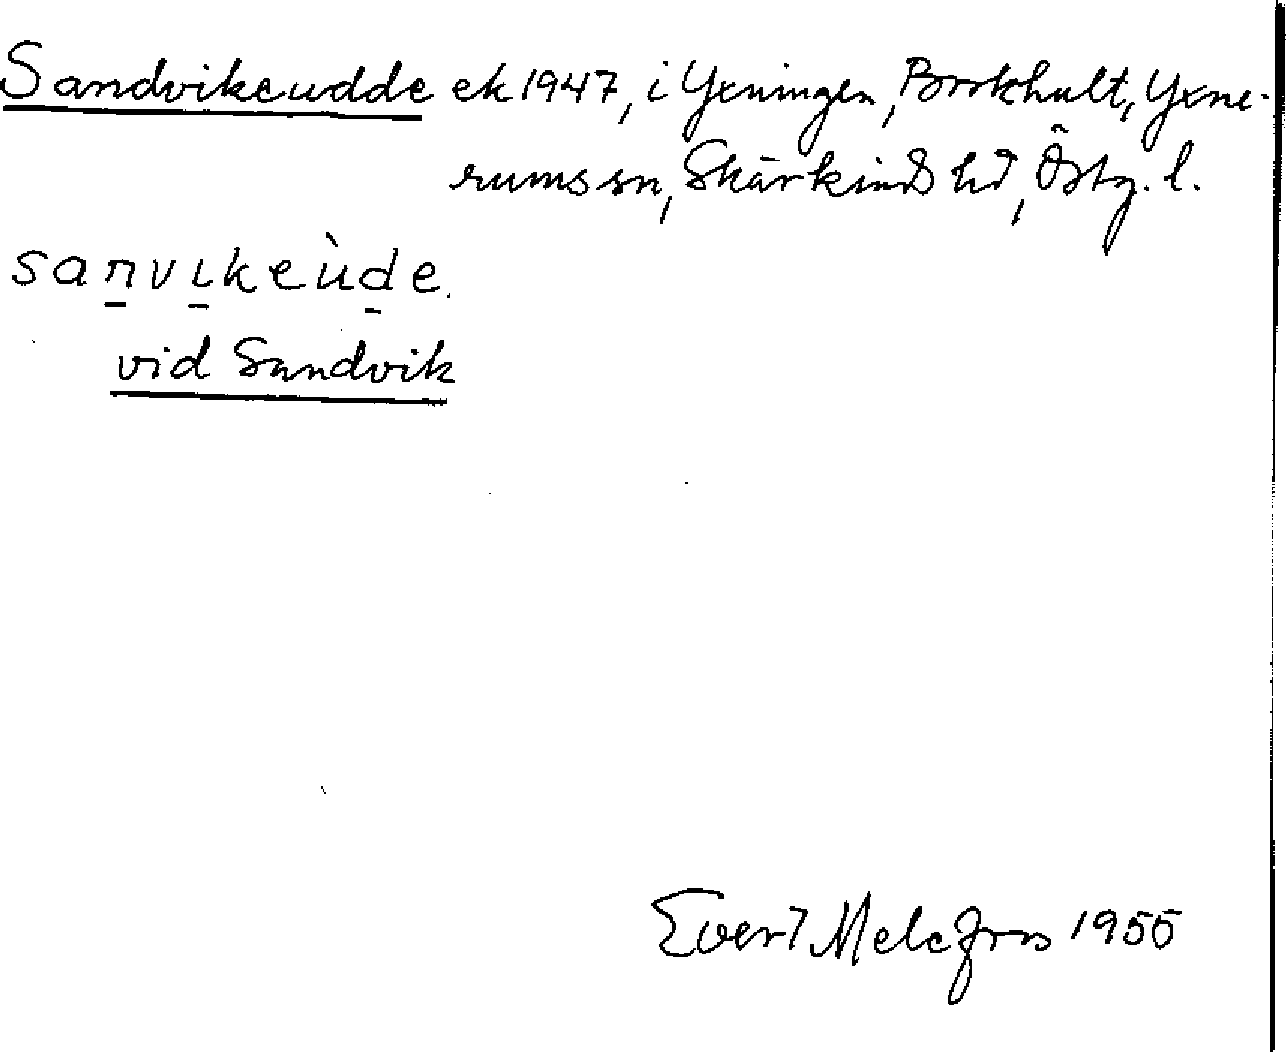 Sandvikeudde ek 1947, i Yxningen, Borkhult, Yxne-
rums sn, Skärkinds hd, Östg. l.
sanvıkeùde.
vid Sandvik
Evert Melefors 1955